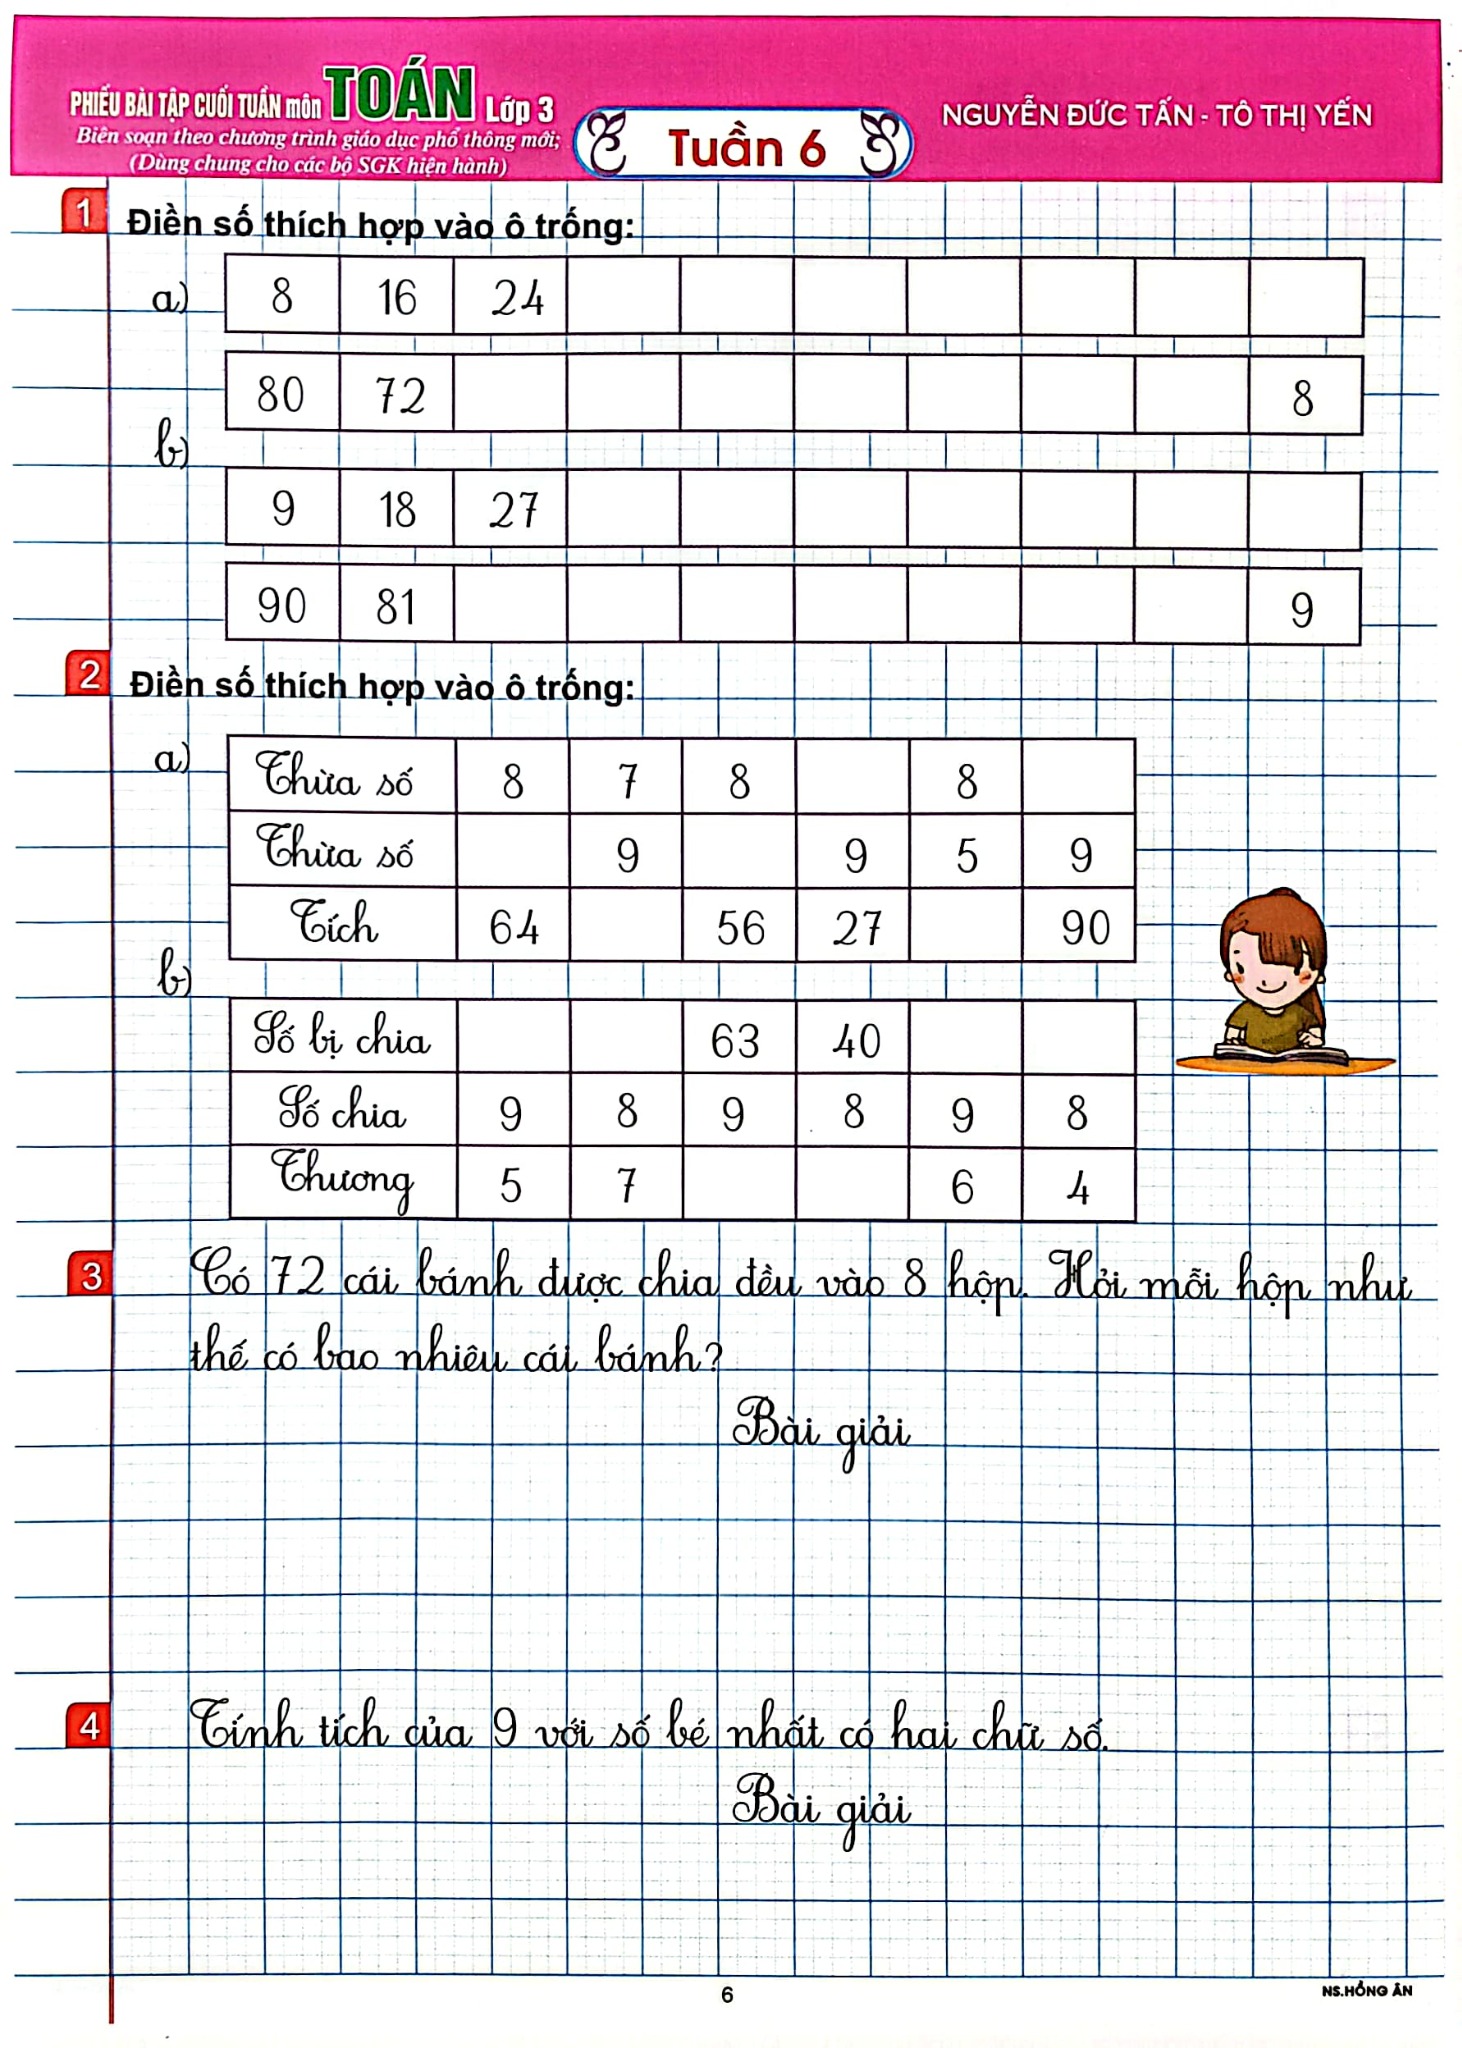 PHIẾU BÀI TẬP CUỐI TUẦN môn TOÁN Lớp 3
Biên soạn theo chương trình giáo dục phổ thông mới;
(Dùng chung cho các bộ SGK hiện hành)
Tuần 6
NGUYỄN ĐỨC TẤN - TÔ THỊ YẾN
1 Điền số thích hợp vào ô trống:
a) 8 16 24
80 72 8
b)
9 18 27
90 81 9
2 Điền số thích hợp vào ô trống:
a) Thừa số 8 7 8 8
Thừa số 9 9 5 9
Tích 64 56 27 90
b)
Số bị chia 63 40
Số chia 9 8 9 8 9 8
Thương 5 7 6 4
3 Có 72 cái bánh được chia đều vào 8 hộp. Hỏi mỗi hộp như
thế có bao nhiêu cái bánh?
Bài giải
4 Tính tích của 9 với số bé nhất có hai chữ số.
Bài giải
6
NS.HỒNG ÂN